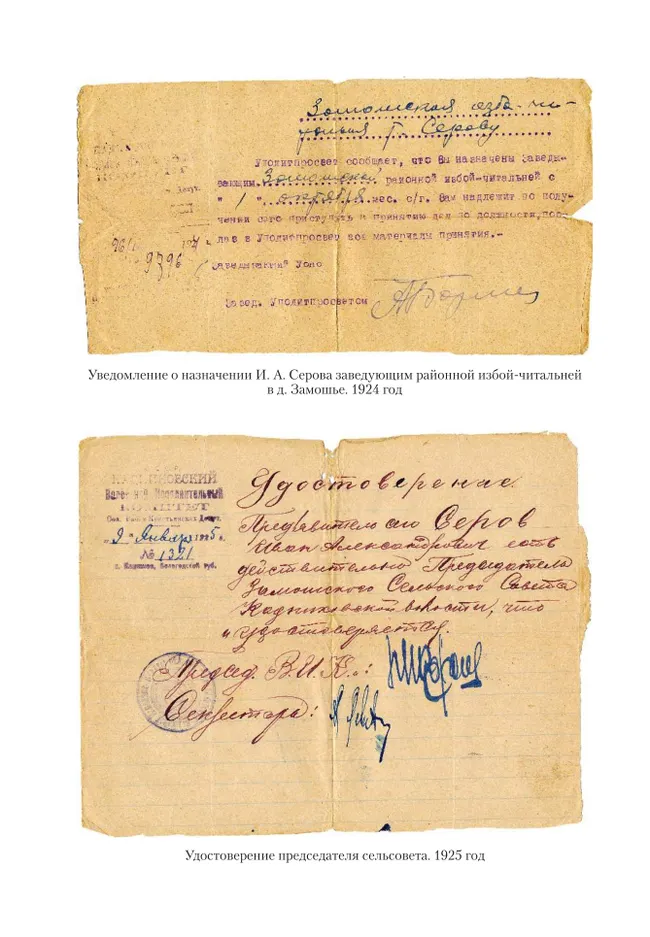 Замошская изба-чи-
тальня т. Серову
Уполитпросвет сообщает, что Вы назначены Заведы-
вающим Замошской районной избой-читальней с
" 1 " октября мес. с/г. Вам надлежит по полу-
чении сего приступить к принятию дел по должности, пос-
лав в Уполитпросвет все материалы принятия.-
9396
Заведывающий Уоно
Завед. Уполитпросветом
Уведомление о назначении И. А. Серова заведующим районной избой-читальней
в д. Замошье. 1924 год
КАДНИКОВСКИЙ
Волостной Исполнительный
КОМИТЕТ
Сов. Раб. и Крестьянских Депут.
"9" Января 1925 г.
№ 1321
г. Кадников, Вологодской губ.
Удостоверение.
Предъявитель сего Серов
Иван Александрович есть
действительно Председатель
Замошского Сельского Совета
Кадниковской волости, что
и удостоверяется.
Председ. В.И.К.:
Секретарь:
Удостоверение председателя сельсовета. 1925 год